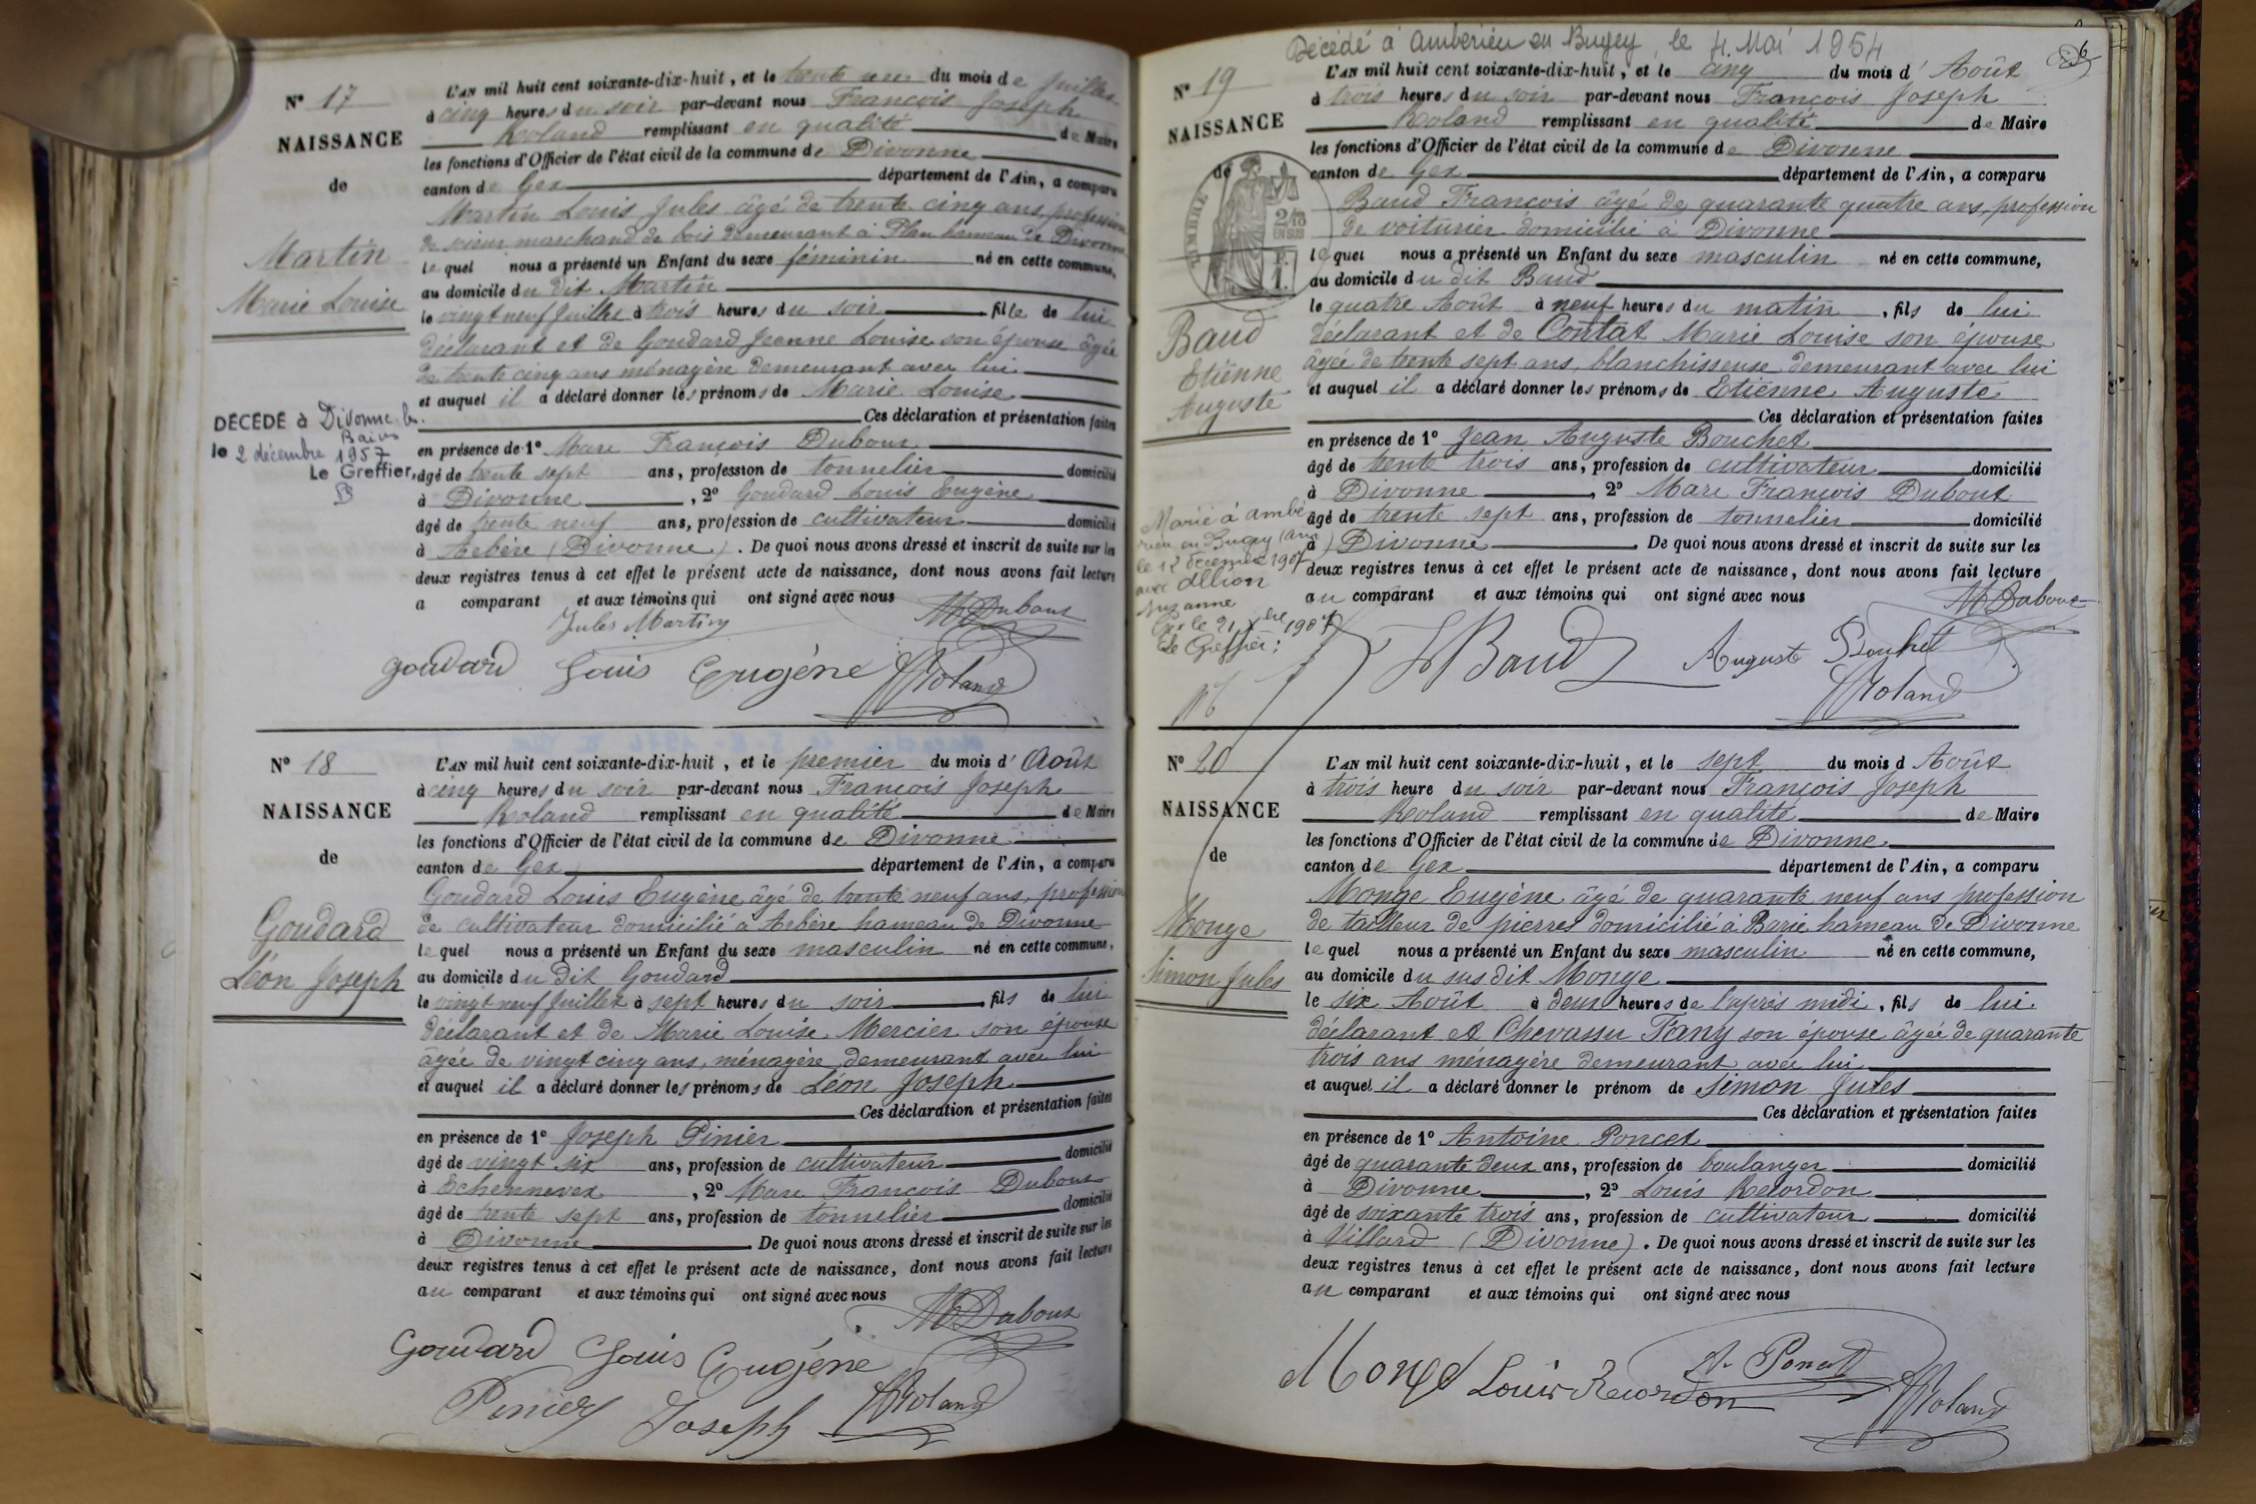 Nº 17
NAISSANCE
de
Martin
Marie Louise
DÉCÉDÉ à Divonne les
Bains
le 2 décembre 1957
Le Greffier,
L'AN mil huit cent soixante-dix-huit, et le trente un du mois de Juillet
à cinq heures du soir par-devant nous François Joseph
Roland remplissant en qualité de Maire
les fonctions d'Officier de l'état civil de la commune de Divonne
canton de Gex département de l'Ain, a comparu
Martin Louis Jules âgé de trente cinq ans, profession
de scieur marchand de bois demeurant à Plan hameau de Divonne
lequel nous a présenté un Enfant du sexe féminin né en cette commune,
au domicile du dit Martin
le vingt neuf Juillet à trois heures du soir fille de lui
déclarant et de Goudard Jeanne Louise son épouse âgée
de trente cinq ans ménagère demeurant avec lui
et auquel il a déclaré donner les prénoms de Marie Louise
Ces déclaration et présentation faites
en présence de 1º Marc François Dubout
âgé de trente sept ans, profession de tonnelier domicilié
à Divonne, 2º Goudard Louis Eugène
âgé de trente neuf ans, profession de cultivateur domicilié
à Arbère (Divonne). De quoi nous avons dressé et inscrit de suite sur les
deux registres tenus à cet effet le présent acte de naissance, dont nous avons fait lecture
a comparant et aux témoins qui ont signé avec nous
M Dubout
Jules Martin
Goudard Louis Eugène Roland
Nº 18
NAISSANCE
de
Goudard
Léon Joseph
L'AN mil huit cent soixante-dix-huit, et le premier du mois d'Août
à cinq heures du soir par-devant nous François Joseph
Roland remplissant en qualité de Maire
les fonctions d'Officier de l'état civil de la commune de Divonne
canton de Gex département de l'Ain, a comparu
Goudard Louis Eugène âgé de trente neuf ans, profession
de cultivateur domicilié à Arbère hameau de Divonne
lequel nous a présenté un Enfant du sexe masculin né en cette commune,
au domicile du dit Goudard
le vingt neuf Juillet à sept heures du soir fils de lui
déclarant et de Marie Louise Mercier son épouse
âgée de vingt cinq ans, ménagère demeurant avec lui
et auquel il a déclaré donner les prénoms de Léon Joseph
Ces déclaration et présentation faites
en présence de 1º Joseph Pinier
âgé de vingt six ans, profession de cultivateur domicilié
à Echennevex, 2º Marc François Dubout
âgé de trente sept ans, profession de tonnelier domicilié
à Divonne De quoi nous avons dressé et inscrit de suite sur les
deux registres tenus à cet effet le présent acte de naissance, dont nous avons fait lecture
au comparant et aux témoins qui ont signé avec nous
M Dubout
Goudard Louis Eugène
Pinier Joseph Roland
Décédé à Ambérieu en Bugey, le 4 Mai 1954
6
Nº 19
NAISSANCE
de
TIMBRE
Baud
Etienne
Auguste
Marié à Ambé
rieu en Bugey (Ain)
le 12 décembre 1907
avec Allion
Suzanne
Gex le 21 Xbre 1907
Le Greffier:
L'AN mil huit cent soixante-dix-huit, et le cinq du mois d'Août
à trois heures du soir par-devant nous François Joseph
Roland remplissant en qualité de Maire
les fonctions d'Officier de l'état civil de la commune de Divonne
canton de Gex département de l'Ain, a comparu
Baud François âgé de quarante quatre ans, profession
de voiturier domicilié à Divonne
lequel nous a présenté un Enfant du sexe masculin né en cette commune,
au domicile du dit Baud
le quatre Août à neuf heures du matin, fils de lui
déclarant et de Contat Marie Louise son épouse
âgée de trente sept ans, blanchisseuse demeurant avec lui
et auquel il a déclaré donner les prénoms de Etienne Auguste
Ces déclaration et présentation faites
en présence de 1º Jean Auguste Bouchet
âgé de trente trois ans, profession de cultivateur domicilié
à Divonne, 2º Marc François Dubout
âgé de trente sept ans, profession de tonnelier domicilié
à Divonne. De quoi nous avons dressé et inscrit de suite sur les
deux registres tenus à cet effet le présent acte de naissance, dont nous avons fait lecture
au comparant et aux témoins qui ont signé avec nous
M Dubout
Baud Auguste Bouchet
Roland
Nº 20
NAISSANCE
de
Monge
Simon Jules
L'AN mil huit cent soixante-dix-huit, et le sept du mois d Août
à trois heure du soir par-devant nous François Joseph
Roland remplissant en qualité de Maire
les fonctions d'Officier de l'état civil de la commune de Divonne
canton de Gex département de l'Ain, a comparu
Monge Eugène âgé de quarante neuf ans profession
de tailleur de pierres domicilié à Barie hameau de Divonne
lequel nous a présenté un Enfant du sexe masculin né en cette commune,
au domicile du sus dit Monge
le six Août à deux heures de l'après midi, fils de lui
déclarant et Chevassu Fany son épouse âgée de quarante
trois ans ménagère demeurant avec lui
et auquel il a déclaré donner le prénom de Simon Jules
Ces déclaration et présentation faites
en présence de 1º Antoine Poncet
âgé de quarante deux ans, profession de boulanger domicilié
à Divonne, 2º Louis Recordon
âgé de soixante trois ans, profession de cultivateur domicilié
à Villard (Divonne). De quoi nous avons dressé et inscrit de suite sur les
deux registres tenus à cet effet le présent acte de naissance, dont nous avons fait lecture
au comparant et aux témoins qui ont signé avec nous
A. Poncet
Monge Louis Recordon Roland